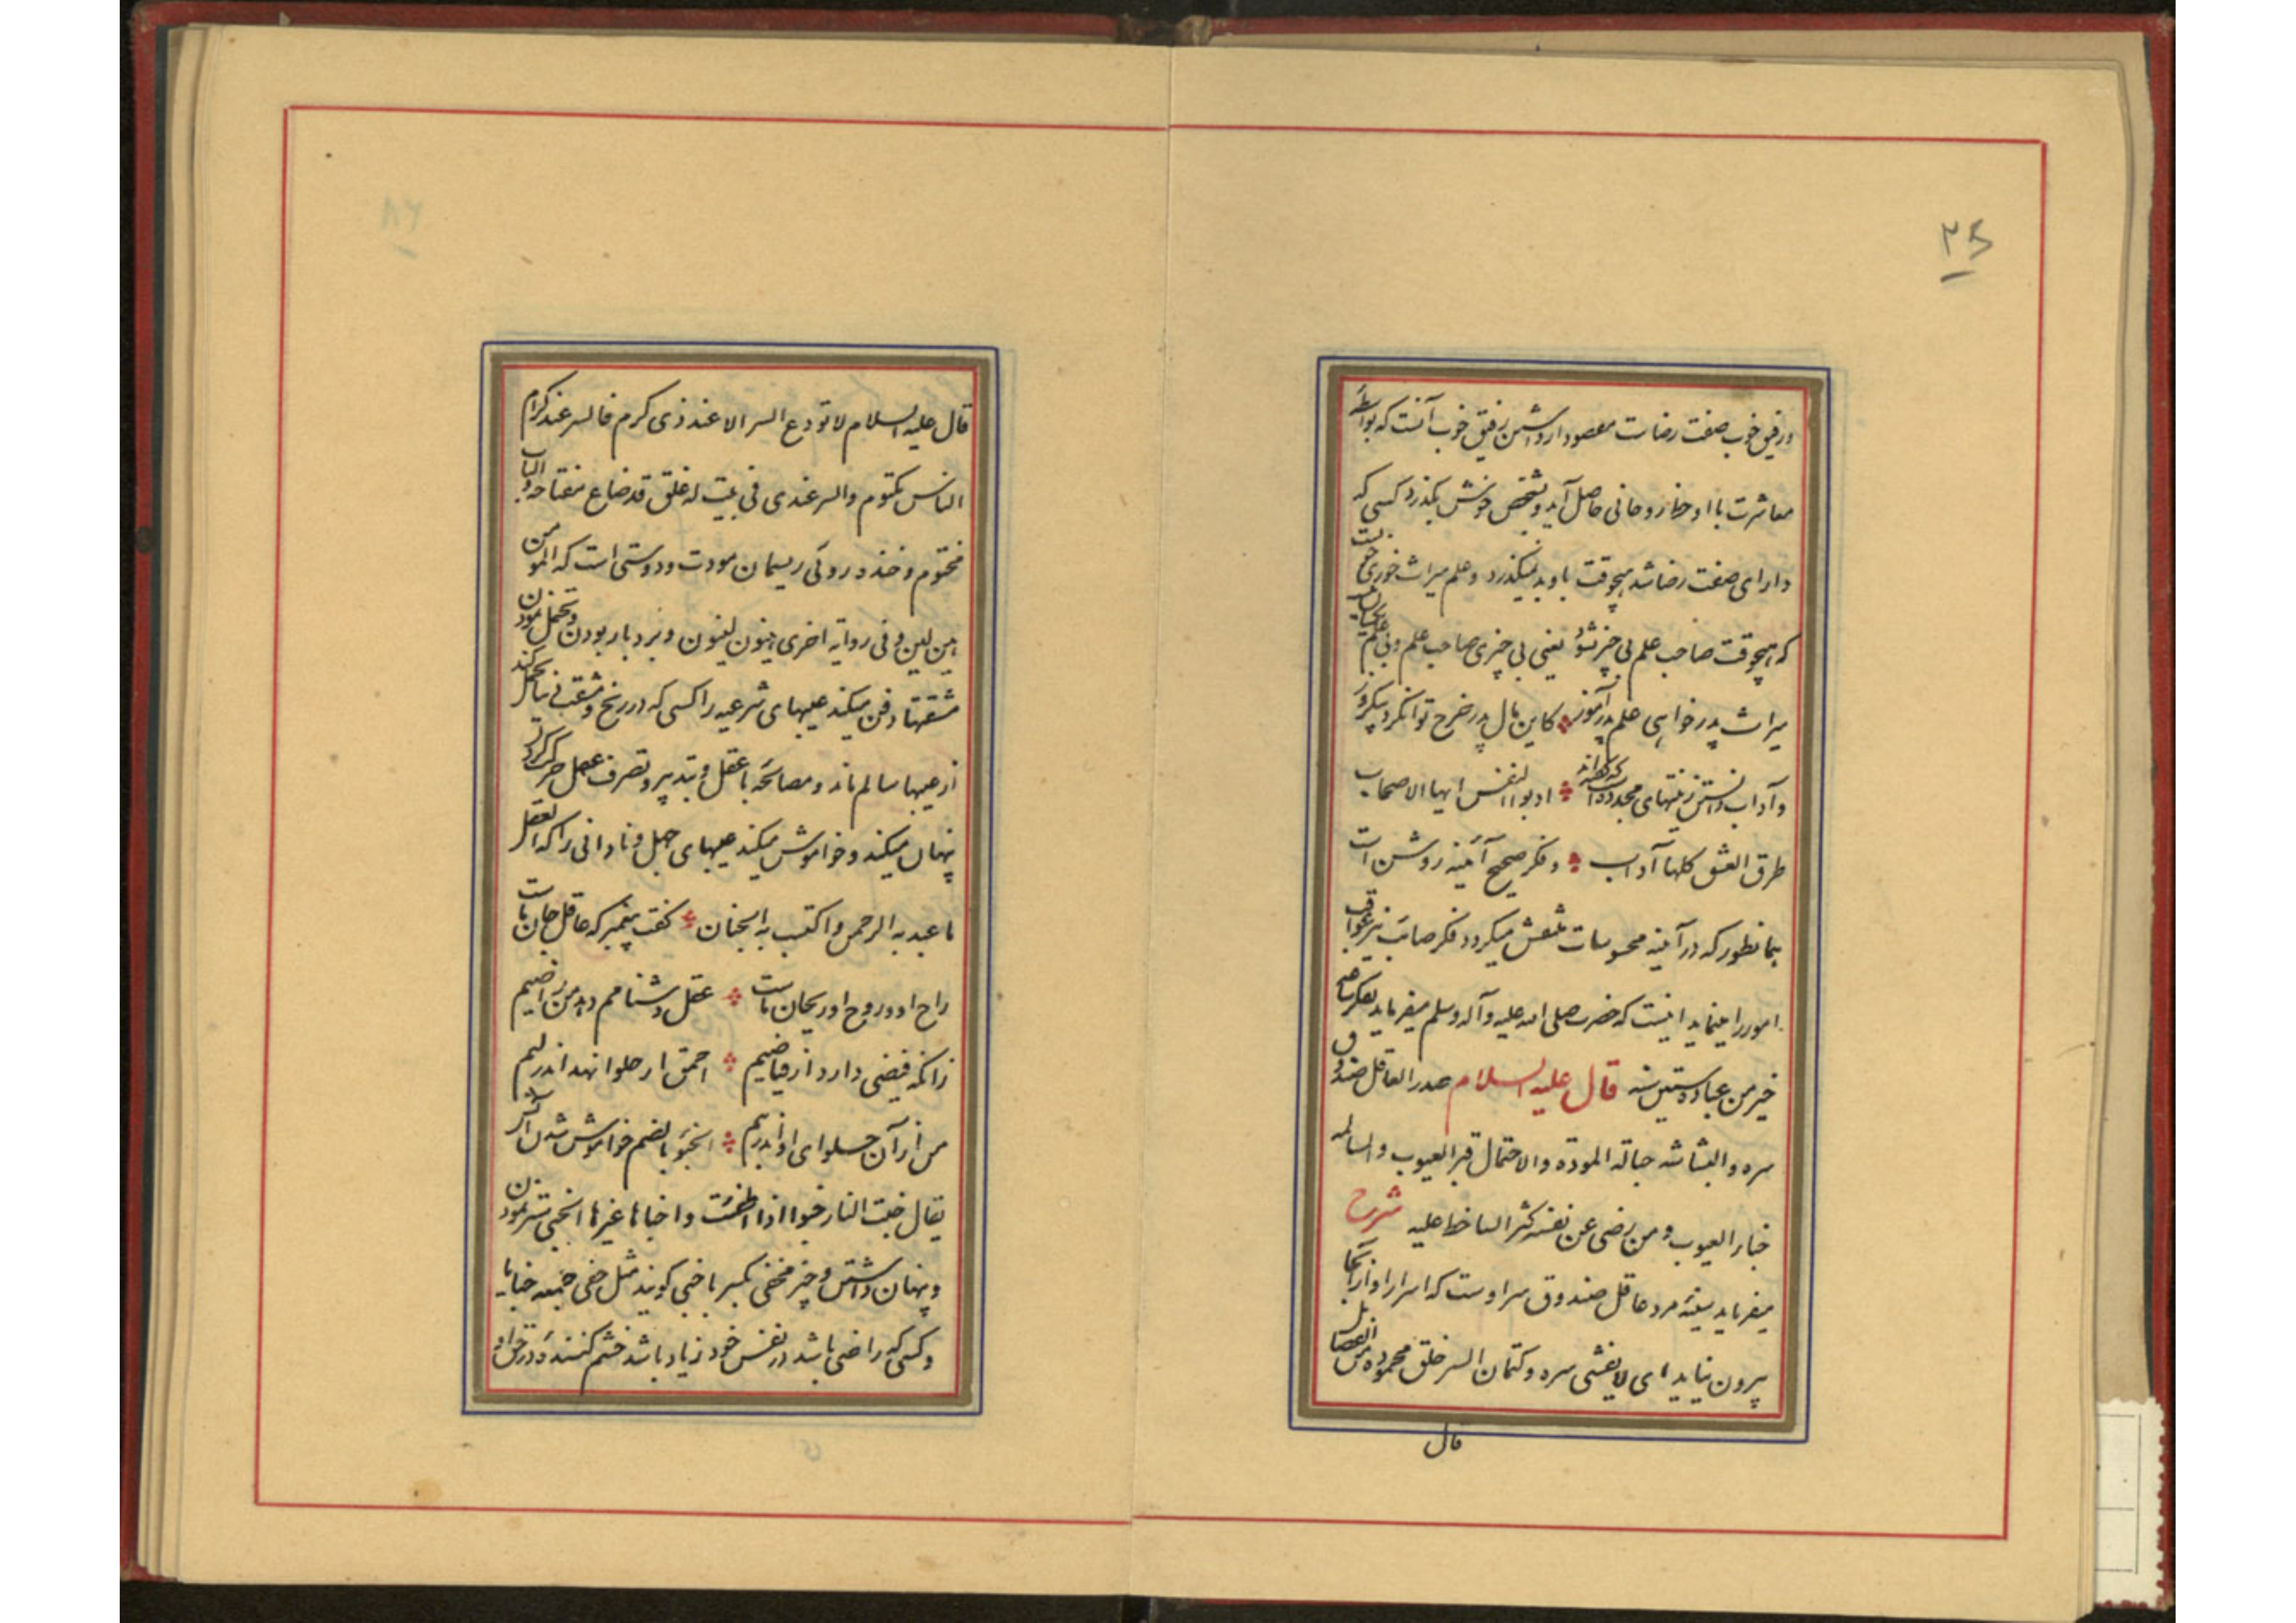 ۳۵
و رفیق خوب صفت رضاست مقصود از داشتن رفیق خوب آنست که بواسطهٔ
معاشرت با او حظ روحانی حاصل آید و بشخص خوش بگذرد کسی که
دارای صفت رضا شد هیچوقت باو بد نمیگذرد و علم میراث خوبی است
که هیچوقت صاحب علم بی چیز نشود یعنی بی چیزی صاحب علم و بی علم
میراث پدر خواهی علم پدر آموز کاین مال پدر خرج توان کرد بیکروز
و آداب داشتن زینتهای مجدده است که گفته‌اند ادبوا النفس ایها الاصحاب
طرق العشق کلها آداب و فکر صحیح آئینه روشن است
همانطور که در آئینه محسوسات منقش میگردد فکر صائب نیز عواقب
امور را مینماید اینست که حضرت صلی الله علیه و آله وسلم میفرماید تفکر ساعة
خیر من عبادة ستین سنه قال علیه السلام صدر العاقل صندوق
سره والبشاشه حبالة الموده والاحتمال قبر العیوب والمسالمه
خبار العیوب ومن رضی عن نفسه کثر الساخط علیه شرح
میفرماید سینه مرد عاقل صندوق سر اوست که اسرار او از آنجا
بیرون نیاید ای لا یفشی سره و کتمان السر خلق محموده من الخصائل
قال
قال علیه السلام لا تودع السر الا عند ذی کرم فالسر عند کرام
الناس مکتوم والسر عندی فی بیت له غلق قد ضاع مفتاحه والباب
مختوم و خنده روئی ریسمان مودت و دوستی است که المؤمن
هین لین و فی روایة اخری هینون لینون و بردبار بودن و تحمل نمودن
مشقتها دفن میکند عیبهای شرعیه را کسی که در رنج و مشقت تحمل کند
از عیبها سالم ماند و مصالحه با عقل و تدبیر و تصرف عقل حرکت کردن
پنهان میکند و خواموش میکند عیبهای جهل و نادانی را که العقل
ما عبد به الرحمن و اکتسب به الجنان گفت پیغمبر که عاقل جان ماست
راح او و روح او ریحان ماست عقل دشنامم دهد من راضیم
زانکه فیضی دارد از فیاضیم احمق ار حلوا نهد اندر لبم
من از آن حلوای او اندر تبم الخبو بالضم خواموش شدن آتش
یقال خبت النار خبوا اذا اطفئت و اخباها غیرها الخبی ستر نمودن
و پنهان داشتن و چیز مخفی بکسر با خبی گویند مثل خفی جمعه خبایا
و کسی که راضی باشد در نفس خود زیاد باشد خشم کننده در حق او